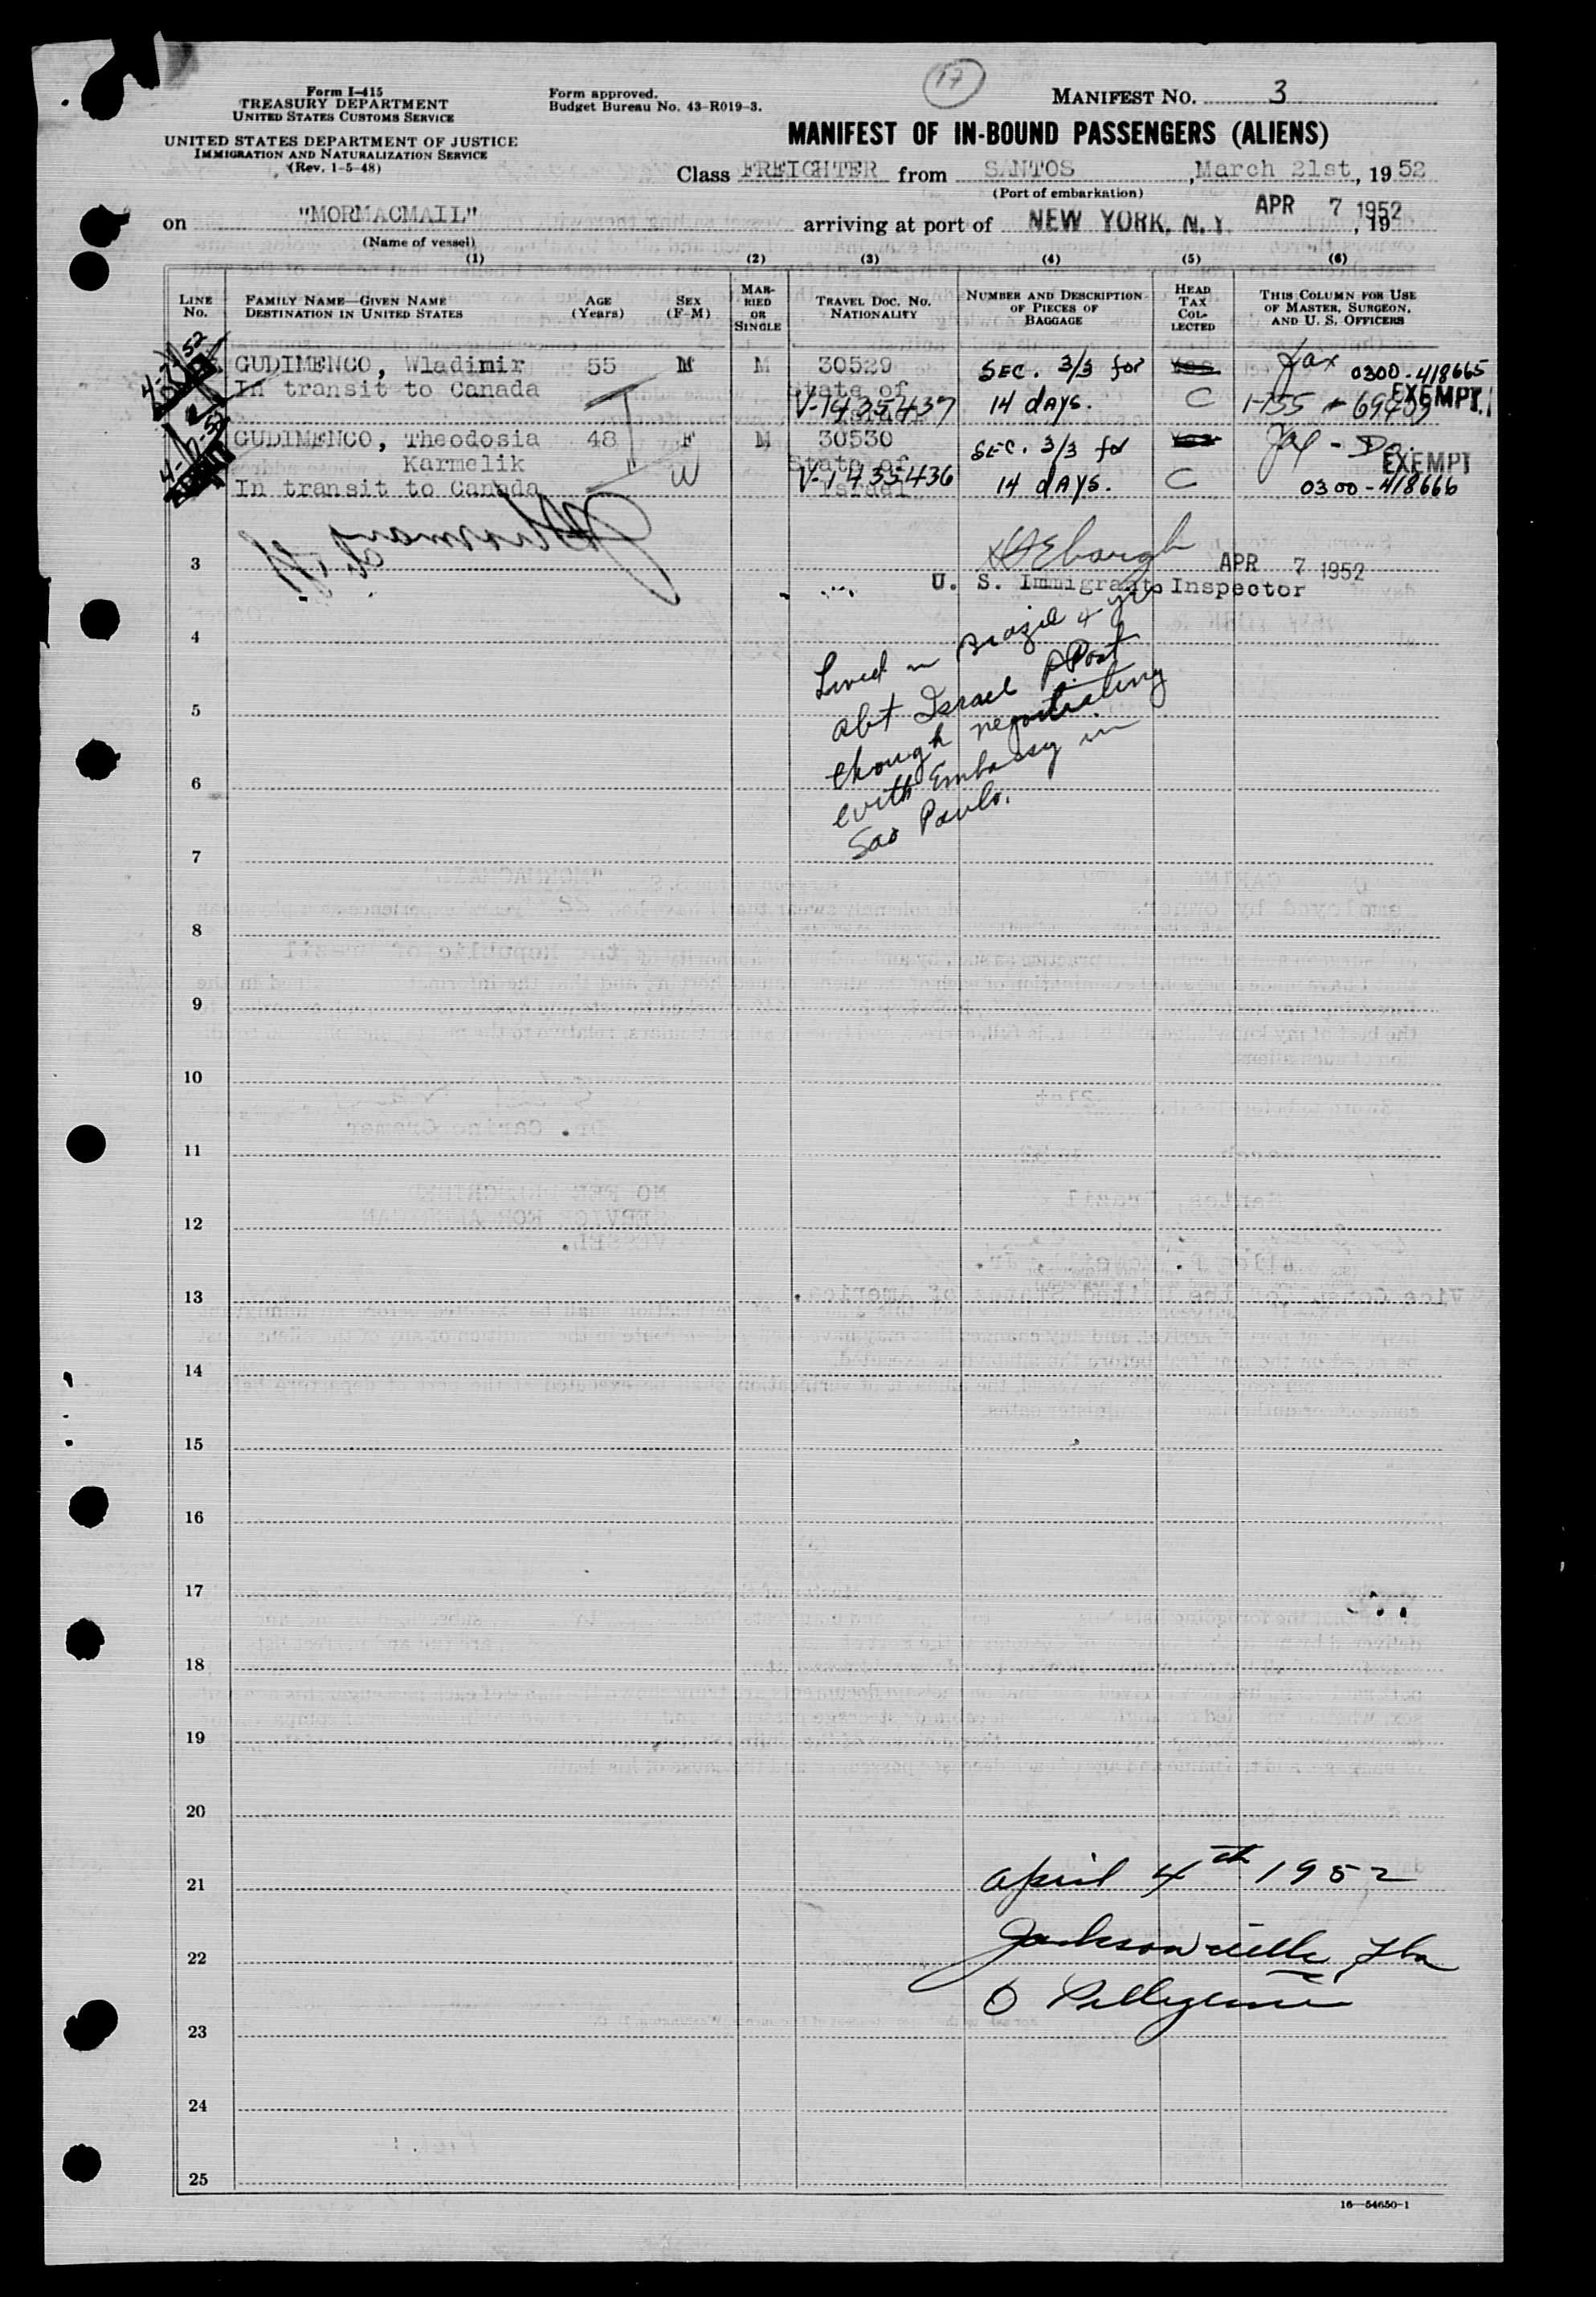 17
Form I-415
TREASURY DEPARTMENT
UNITED STATES CUSTOMS SERVICE
UNITED STATES DEPARTMENT OF JUSTICE
IMMIGRATION AND NATURALIZATION SERVICE
(Rev. 1-5-48)
Form approved.
Budget Bureau No. 43-R019-3.
MANIFEST NO. 3
MANIFEST OF IN-BOUND PASSENGERS (ALIENS)
Class FREIGHTER from SANTOS, March 21st, 1952
(Port of embarkation)
on "MORMACMAIL" arriving at port of NEW YORK, N.Y. APR 7 1952, 19
(Name of vessel)
(1) (2) (3) (4) (5) (6)
LINE No.
FAMILY NAME—GIVEN NAME
DESTINATION IN UNITED STATES
AGE (Years)
SEX (F-M)
MARRIED OR SINGLE
TRAVEL DOC. NO.
NATIONALITY
NUMBER AND DESCRIPTION OF PIECES OF BAGGAGE
HEAD TAX COLLECTED
THIS COLUMN FOR USE OF MASTER, SURGEON, AND U. S. OFFICERS
GUDIMENCO, Wladimir 55 M M 30529 SEC. 3/3 for Yes Jax 0300-418665
In transit to Canada State of Israel V-1435437 14 days. C EXEMPT
GUDIMENCO, Theodosia 48 F M 30530 SEC. 3/3 for Yes Jax - Do.
Karmelik W State of EXEMPT
In transit to Canada V-1435436 Israel 14 days. C 0300-418666
3
APR 7 1952
U. S. Immigrant Inspector
4
Lived in Brazil 4 yrs
5
abt Israel PPort
though negotiating
6
with Embassy in
Sao Paulo.
7
8
9
10
11
12
13
14
15
16
17
18
19
20
21 April 4th 1952
22 Jacksonville, Fla
23 O Pellegrini
24
25
16—54650-1